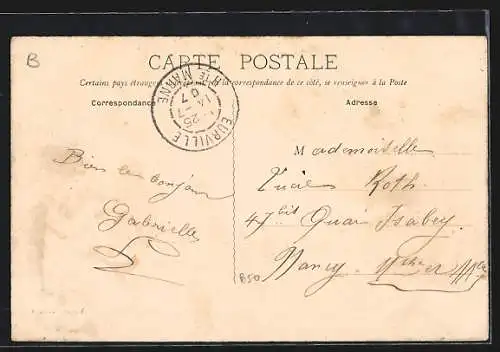 B
CARTE POSTALE
Certains pays étrangers la correspondance de ce côté, se renseigner à la Poste
Correspondance
Adresse
EURVILLE
HTE MARNE
14-7
07
Mademoiselle
Lucie Roth.
47 bis Quai Isabey.
Nancy. Mthe et Mlle
Bien le bonjour
Gabrielle
B50